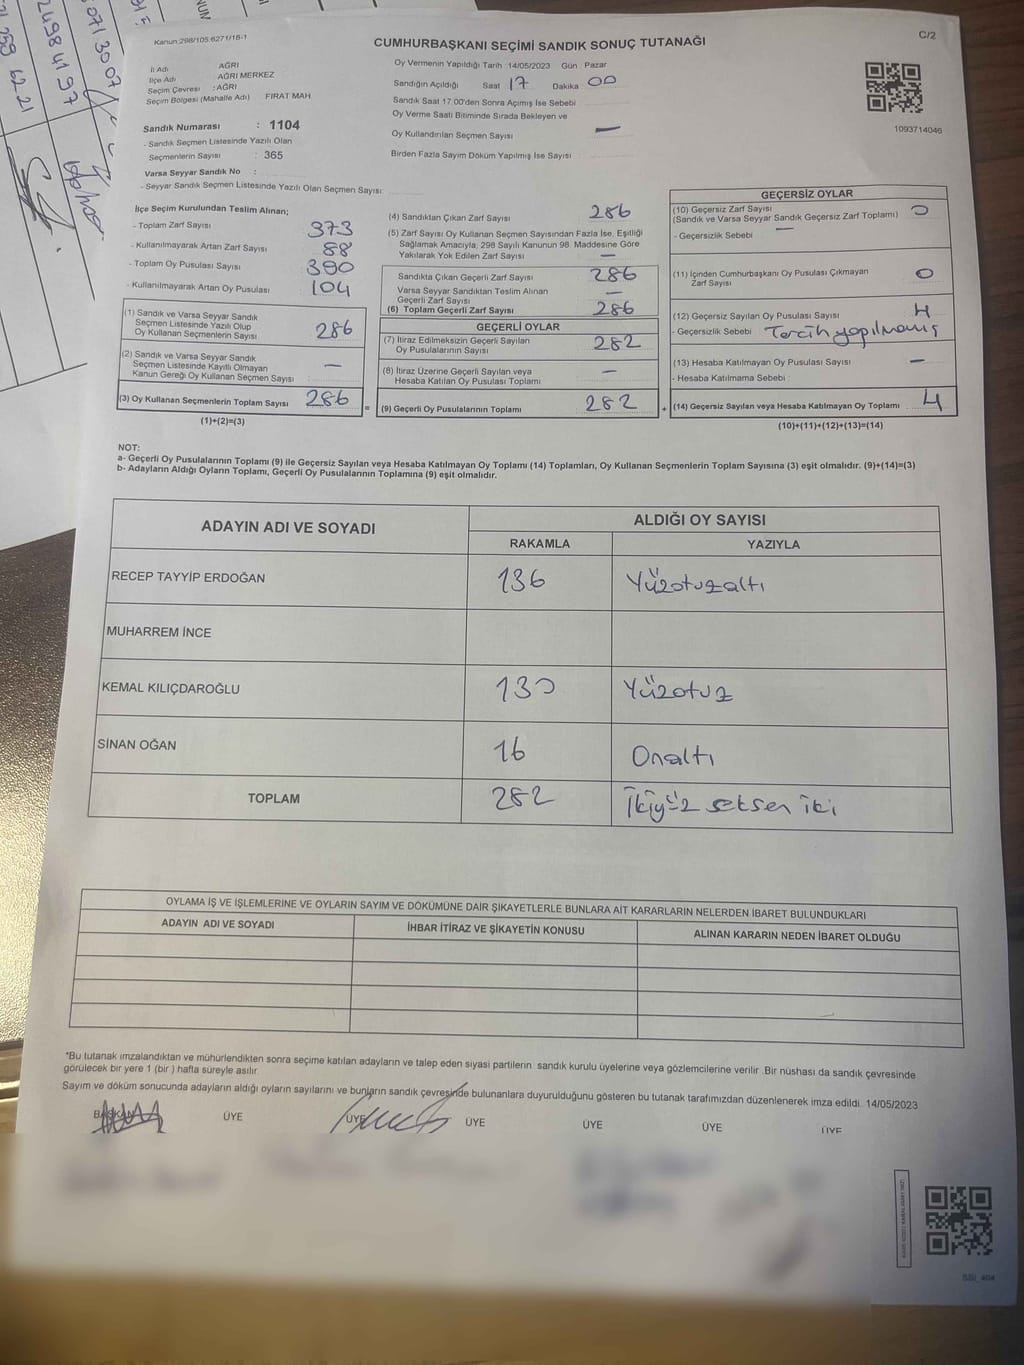 Kanun:298/105.6271/18-1
CUMHURBAŞKANI SEÇİMİ SANDIK SONUÇ TUTANAĞI
C/2
İl Adı AĞRI
İlçe Adı AĞRI MERKEZ
Seçim Çevresi : AĞRI
Seçim Bölgesi (Mahalle Adı) FIRAT MAH.
Sandık Numarası : 1104
- Sandık Seçmen Listesinde Yazılı Olan
Seçmenlerin Sayısı : 365
Varsa Seyyar Sandık No :
- Seyyar Sandık Seçmen Listesinde Yazılı Olan Seçmen Sayısı:
Oy Vermenin Yapıldığı Tarih :14/05/2023 Gün Pazar
Sandığın Açıldığı Saat 17 Dakika 00
Sandık Saat 17:00'den Sonra Açılmış İse Sebebi
Oy Verme Saati Bitiminde Sırada Bekleyen ve
Oy Kullandırılan Seçmen Sayısı —
Birden Fazla Sayım Döküm Yapılmış İse Sayısı
1093714046
İlçe Seçim Kurulundan Teslim Alınan;
- Toplam Zarf Sayısı 373
- Kullanılmayarak Artan Zarf Sayısı 88
- Toplam Oy Pusulası Sayısı 390
- Kullanılmayarak Artan Oy Pusulası 104
(1) Sandık ve Varsa Seyyar Sandık
Seçmen Listesinde Yazılı Olup
Oy Kullanan Seçmenlerin Sayısı 286
(2) Sandık ve Varsa Seyyar Sandık
Seçmen Listesinde Kayıtlı Olmayan
Kanun Gereği Oy Kullanan Seçmen Sayısı —
(3) Oy Kullanan Seçmenlerin Toplam Sayısı 286
(1)+(2)=(3)
(4) Sandıktan Çıkan Zarf Sayısı 286
(5) Zarf Sayısı Oy Kullanan Seçmen Sayısından Fazla İse, Eşitliği
Sağlamak Amacıyla, 298 Sayılı Kanunun 98. Maddesine Göre
Yakılarak Yok Edilen Zarf Sayısı —
Sandıkta Çıkan Geçerli Zarf Sayısı 286
Varsa Seyyar Sandıktan Teslim Alınan
Geçerli Zarf Sayısı —
(6) Toplam Geçerli Zarf Sayısı 286
GEÇERLİ OYLAR
(7) İtiraz Edilmeksizin Geçerli Sayılan
Oy Pusulalarının Sayısı 282
(8) İtiraz Üzerine Geçerli Sayılan veya
Hesaba Katılan Oy Pusulası Toplamı —
= (9) Geçerli Oy Pusulalarının Toplamı 282
GEÇERSİZ OYLAR
(10) Geçersiz Zarf Sayısı
(Sandık ve Varsa Seyyar Sandık Geçersiz Zarf Toplamı) 0
- Geçersizlik Sebebi —
(11) İçinden Cumhurbaşkanı Oy Pusulası Çıkmayan
Zarf Sayısı 0
(12) Geçersiz Sayılan Oy Pusulası Sayısı 4
- Geçersizlik Sebebi Tercih yapılmamış
(13) Hesaba Katılmayan Oy Pusulası Sayısı —
- Hesaba Katılmama Sebebi :
+ (14) Geçersiz Sayılan veya Hesaba Katılmayan Oy Toplamı 4
(10)+(11)+(12)+(13)=(14)
NOT:
a- Geçerli Oy Pusulalarının Toplamı (9) ile Geçersiz Sayılan veya Hesaba Katılmayan Oy Toplamı (14) Toplamları, Oy Kullanan Seçmenlerin Toplam Sayısına (3) eşit olmalıdır. (9)+(14)=(3)
b- Adayların Aldığı Oyların Toplamı, Geçerli Oy Pusulalarının Toplamına (9) eşit olmalıdır.
ADAYIN ADI VE SOYADI
ALDIĞI OY SAYISI
RAKAMLA YAZIYLA
RECEP TAYYİP ERDOĞAN 136 Yüzotuzaltı
MUHARREM İNCE
KEMAL KILIÇDAROĞLU 130 Yüzotuz
SİNAN OĞAN 16 Onaltı
TOPLAM 282 İkiyüz seksen iki
OYLAMA İŞ VE İŞLEMLERİNE VE OYLARIN SAYIM VE DÖKÜMÜNE DAİR ŞİKAYETLERLE BUNLARA AİT KARARLARIN NELERDEN İBARET BULUNDUKLARI
ADAYIN ADI VE SOYADI İHBAR İTİRAZ VE ŞİKAYETİN KONUSU ALINAN KARARIN NEDEN İBARET OLDUĞU
*Bu tutanak imzalandıktan ve mühürlendikten sonra seçime katılan adayların ve talep eden siyasi partilerin sandık kurulu üyelerine veya gözlemcilerine verilir .Bir nüshası da sandık çevresinde
görülecek bir yere 1 (bir ) hafta süreyle asılır.
Sayım ve döküm sonucunda adayların aldığı oyların sayılarını ve bunların sandık çevresinde bulunanlara duyurulduğunu gösteren bu tutanak tarafımızdan düzenlenerek imza edildi. 14/05/2023
BAŞKAN ÜYE ÜYE ÜYE ÜYE ÜYE ÜYE